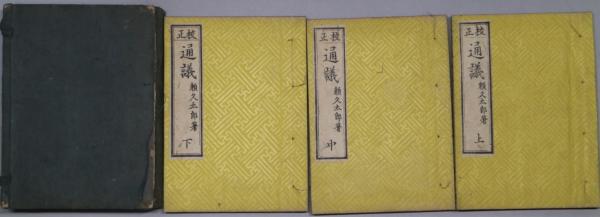 校正
通議
頼久太郎著
上
校正
通議
頼久太郎著
中
校正
通議
頼久太郎著
下